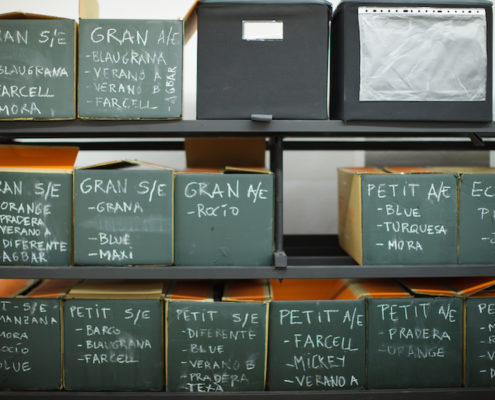 RAN S/E
BLAUGRANA
FARCELL
MORA
GRAN A/E
-BLAUGRANA
-VERANO A
-VERANO B
-FARCELL
-AGBAR
RAN S/E
ORANGE
PRADERA
VERANO A
DIFERENTE
AGBAR
GRAN S/E
-GRANA
-BLUE
-MAXI
GRAN A/E
-ROCIO
PETIT A/E
-BLUE
-TURQUESA
-MORA
T-S/E
MANZANA
MORA
ROCIO
BLUE
PETIT S/E
-BARÇO
-BLAUGRANA
-FARCELL
PETIT S/E
-DIFERENTE
-BLUE
-VERANO B
-PRADERA
TEXA
PETIT A/E
-FARCELL
-MICKEY
-VERANO A
PETIT A/E
-PRADERA
-ORANGE